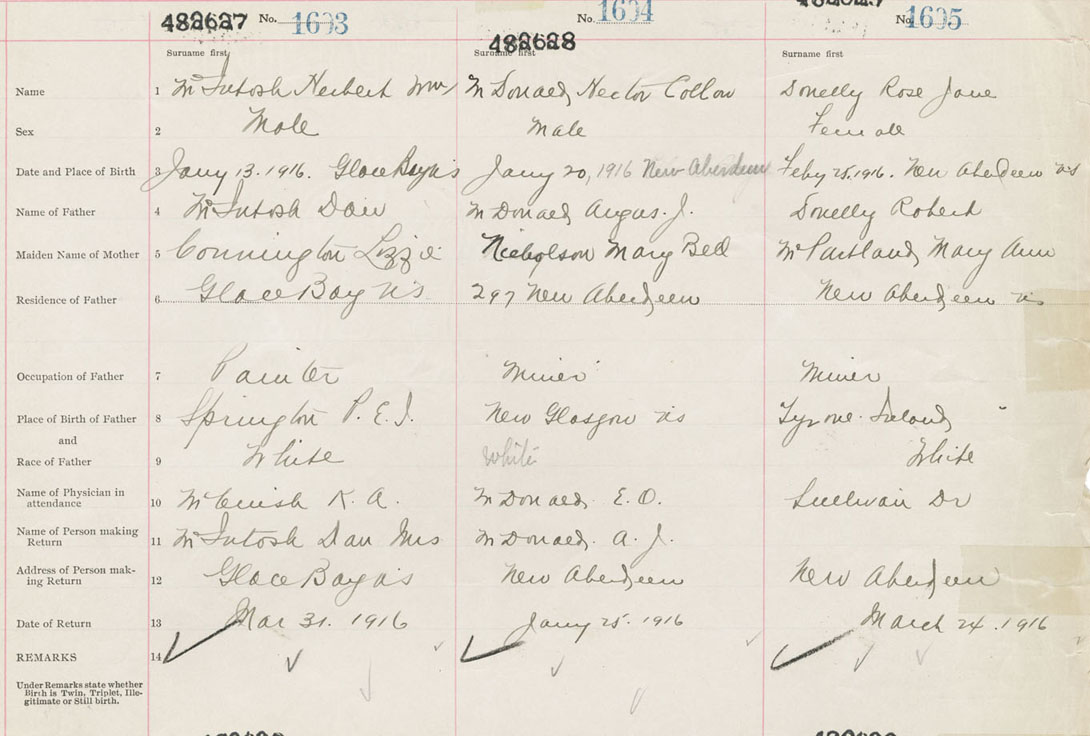 482627 No. 1693 No. 1694 No. 1695
482628
Surname first Surname first Surname first
Name 1 McIntosh Herbert Wm McDonald, Hector Collow Donelly Rose Jane
Sex 2 Male Male Female
Date and Place of Birth 3 Jany 13. 1916. Glace Bay NS Jany 20, 1916 New Aberdeen Feby 25. 1916. New Aberdeen NS
Name of Father 4 McIntosh Dan McDonald Angus. J. Donelly Robert
Maiden Name of Mother 5 Connington Lizzie Nicholson Mary Bell McPartland, Mary Ann
Residence of Father 6 Glace Bay NS 297 New Aberdeen New Aberdeen NS
Occupation of Father 7 Painter Miner Miner
Place of Birth of Father 8 Springton P. E. I. New Glasgow NS Tyrone. Ireland
and
Race of Father 9 White White White
Name of Physician in
attendance 10 K. A. McDonald, E. O. Sullivan Dr
Name of Person making
Return 11 McIntosh Dan Mrs McDonald. A. J.
Address of Person mak-
ing Return 12 Glace Bay NS New Aberdeen New Aberdeen
Date of Return 13 Mar 31. 1916 Jany 25. 1916 March 24. 1916
REMARKS 14
Under Remarks state whether
Birth is Twin, Triplet, Ille-
gitimate or Still birth.